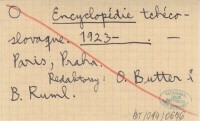 O Encyclopédie tchéco-
slovaque. 1923-. -
Paris, Praha.
Redaktory: O. Butter &
B. Ruml.
BT/044/0656